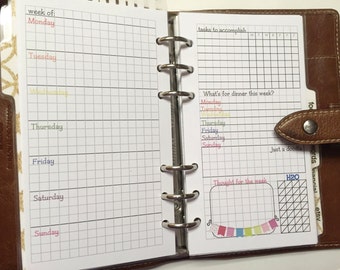 week of:
Monday
Tuesday
Wednesday
Thursday
Friday
Saturday
Sunday
tasks to accomplish
What's for dinner this week?
Monday
Tuesday
Wednesday
Thursday
Friday
Saturday
Sunday
Thought for the week
H2O